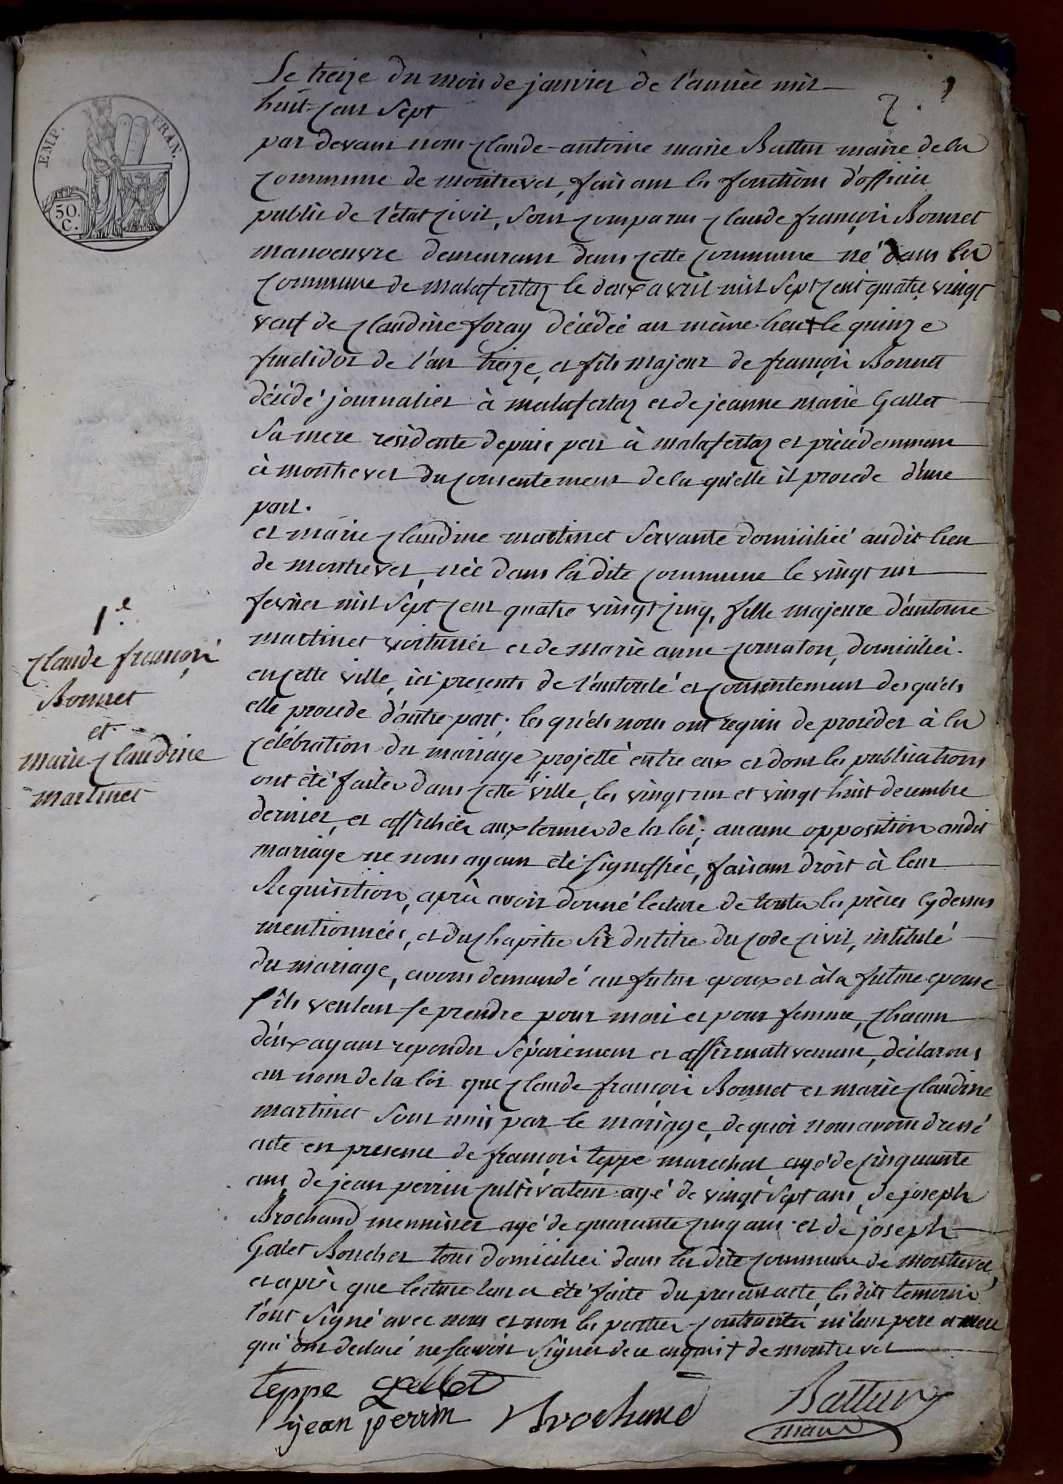 Le treize du mois de janvier de l'année mil
huit cent sept
2.
par devant nous Claude antoine marie Battur maire de la
Commune de montrevel, faisant les fonctions d'officier
public de l'état Civil, sont Comparus Claude françois Bonnet
manoeuvre demeurant dans Cette Commune né dans la
Commune de malafertaz le deux avril mil Sept Cent quatre vingt
veuf de Claudine foray décédée au même lieu le quinze
fructidor de l'an treize, et fils majeur de françois Bonnet
décédé journalier à malafertaz et de jeanne marie Gallet
Sa mere residente depuis peu à malafertaz et précédemment
à montrevel du Consentement de la quelle il procede d'une
part.
et marie Claudine martinet Servante domiciliée audit lieu
de montrevel, née dans la dite Commune le vingt un
fevrier mil Sept Cent quatre vingt Cinq, fille majeure d'antoine
martinet voiturier et de marie anne Cornaton, domiciliés
en Cette ville, ici presents de l'autorité et Consentement desquels
elle procede d'autre part; lesquels nous ont requis de procéder à la
Célébration du mariage projetté entre eux et dont les publications
ont été faites dans Cette ville, les vingt un et vingt huit decembre
dernier, et affichées aux termes de la loi; aucune opposition audit
mariage ne nous ayant été Signiffiée, faisant droit à leur
Requisition, après avoir donné lecture de toutes les pièces Cy dessus
mentionnées, et du Chapitre Six du titre du Code Civil, intitulé
du mariage, avons demandé au futur epoux et à la future epouse
s'ils veulent se prendre pour mari et pour femme, Chacun
d'eux ayant repondu Séparément et affirmativement, déclarons
au nom de la loi que Claude françois Bonnet et marie Claudine
martinet Sont unis par le mariage, de quoi nous avons dressé
acte en presence de françois teppe marechal agé de Cinquante
ans, de jean perrin Cultivateur agé de vingt Sept ans, de joseph
Brochand mennisier agé de quarante Cinq ans et de joseph
Galet Boucher tous domiciliés dans la dite Commune de montrevel,
et après que lecture leur a été faite du present acte, les dits temoins
l'ont Signé avec nous et non les parties Contractantes ni leur pere et mere
qui ont declaré ne Savoir Signer de ce enquis de montrevel
teppe Gallet
jean perrin Brochand Battur
maire
EMP. FRAN.
50
C.
1.e
Claude françois
Bonnet
et
marie Claudine
martinet